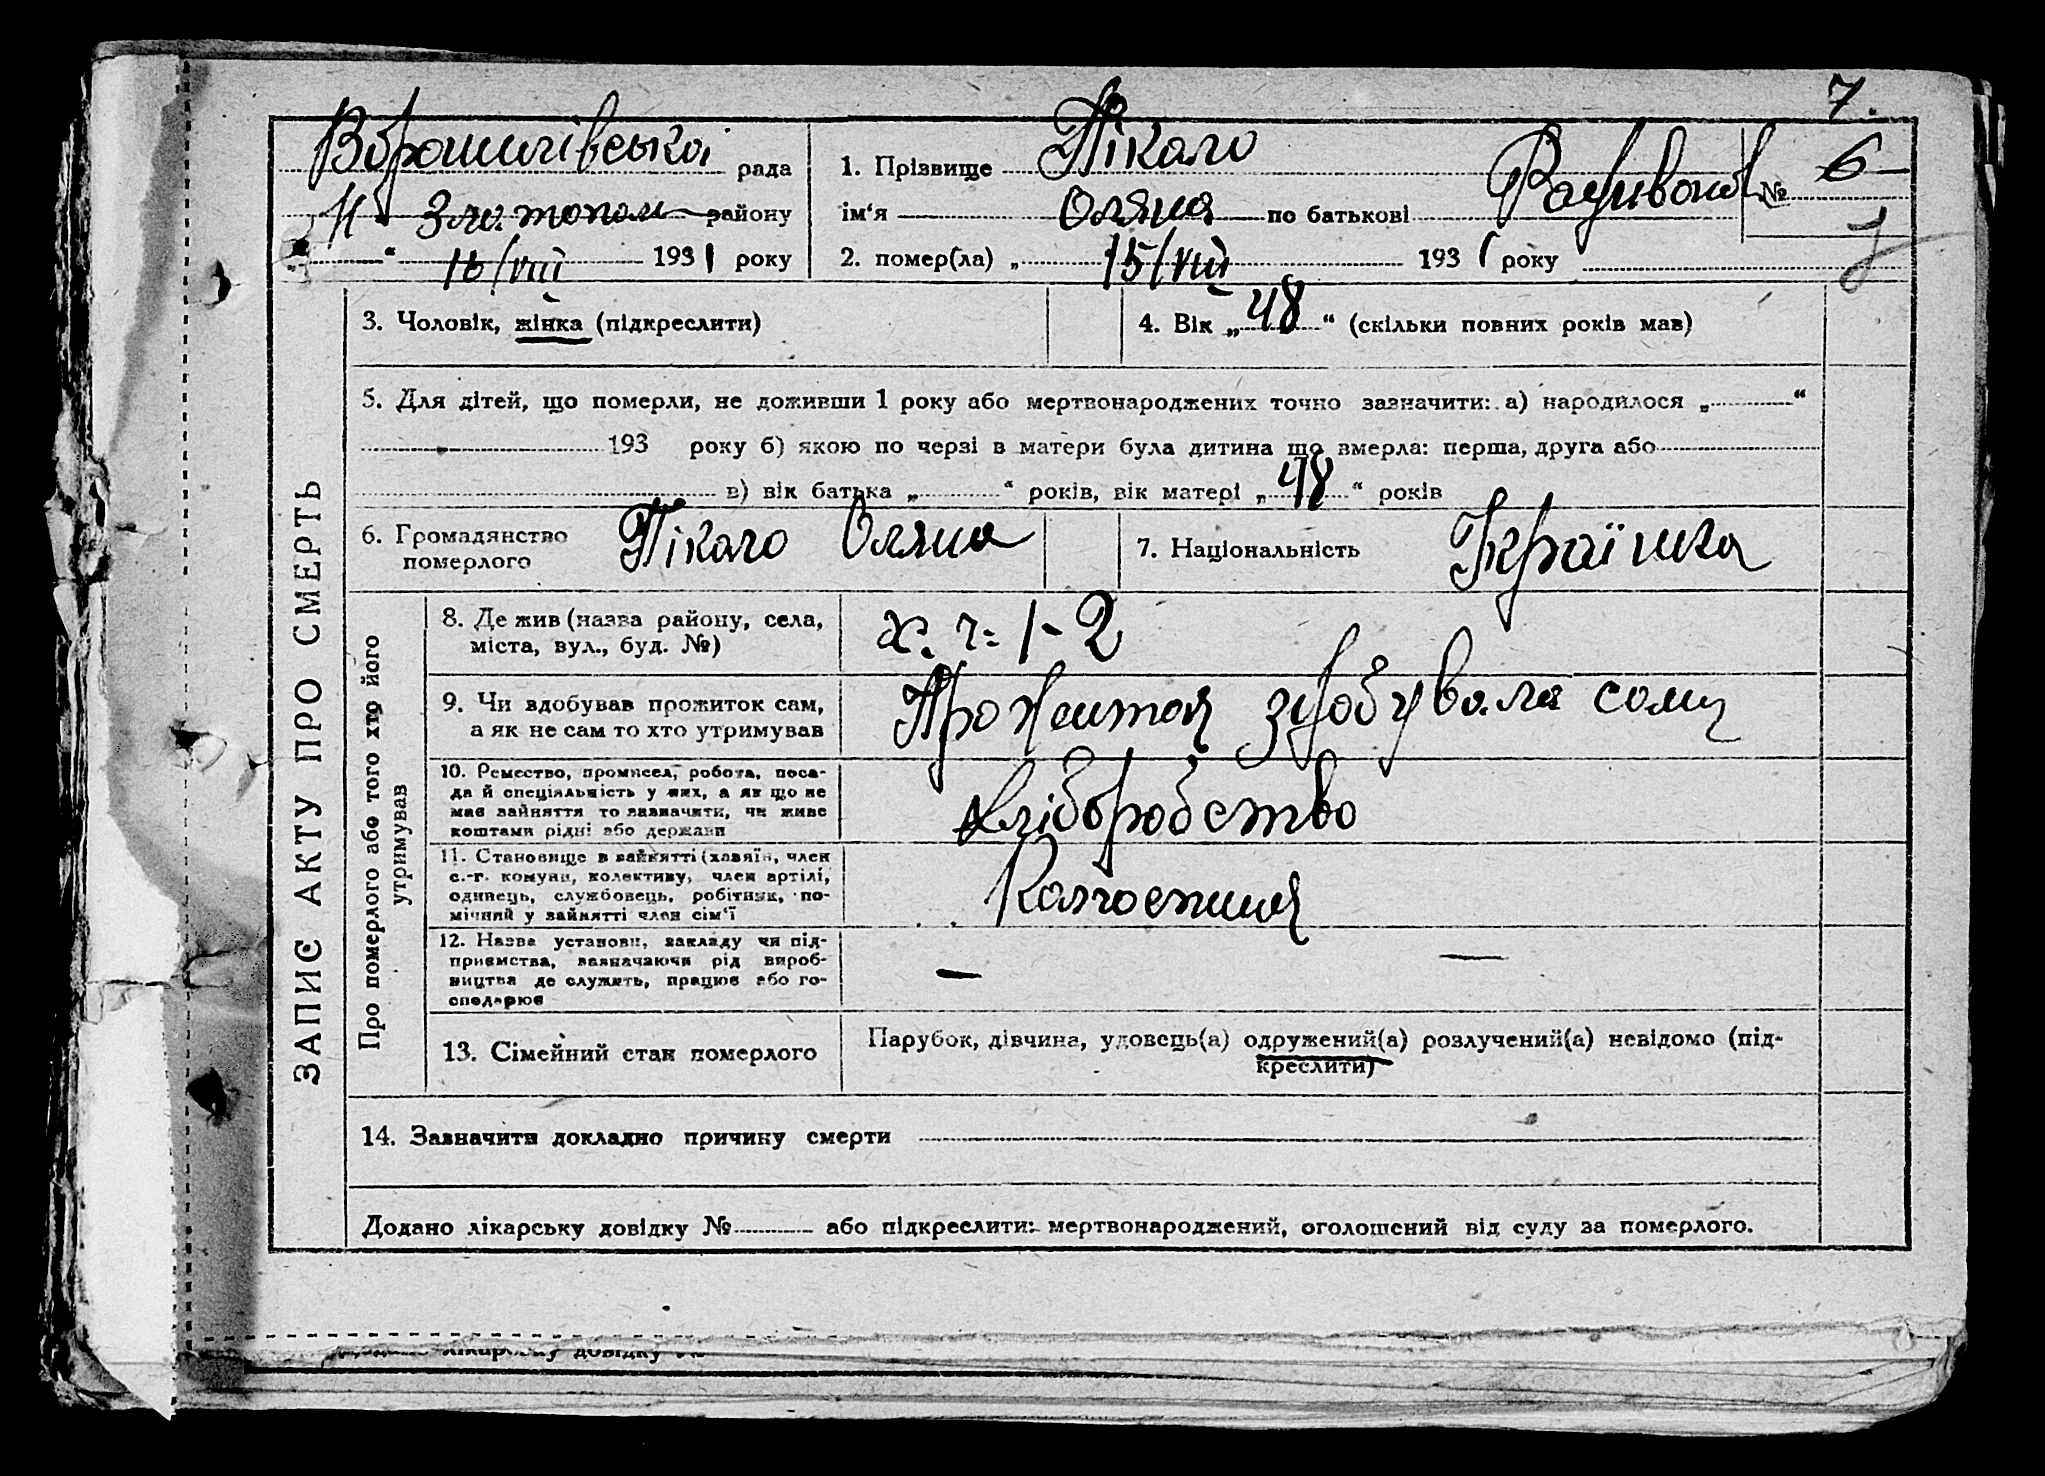 7.
Ворошилівської рада
Н-Златополь району
" 16/VIII 1931 року
1. Прізвище Пікало
ім'я Оляна по батькові
№ 6
2. помер(ла) „ 15/VIII 1931 року
ЗАПИС АКТУ ПРО СМЕРТЬ
3. Чоловік, жінка (підкреслити)
4. Вік „ 48 “ (скільки повних років мав)
5. Для дітей, що померли, не доживши 1 року або мертвонароджених точно зазначити: а) народилося „ “
193 року б) якою по черзі в матери була дитина що вмерла: перша, друга або
в) вік батька „ “ років, вік матері „ 48 “ років
6. Громадянство
померлого
Пікало Оляна
7. Національність Українка
Про померлого або того хто його
утримував
8. Де жив (назва району, села,
міста, вул., буд. №)
х. ч= 1-2
9. Чи вдобував прожиток сам,
а як не сам то хто утримував
Прожиття здобувала сама
10. Ремество, промисел, робота, поса-
да й спеціяльність у них, а як що не
має зайняття то зазначити, чи живе
коштами рідні або держави
Хліборобство
11. Становище в зайнятті (хазяїн, член
с.-г. комуни, колективу, член артілі,
одинець, службовець, робітник, по-
мічний у зайнятті член сім'ї
Колгоспниця
12. Назва установи, закладу чи під-
приємства, зазначаючи рід вироб-
ництва де служить, працює або го-
сподарює
— —
13. Сімейний стан померлого
Парубок, дівчина, удовець(а) одружений(а) розлучений(а) невідомо (під-
креслити)
14. Зазначити докладно причину смерти
Додано лікарську довідку № або підкреслити: мертвонароджений, оголошений від суду за померлого.